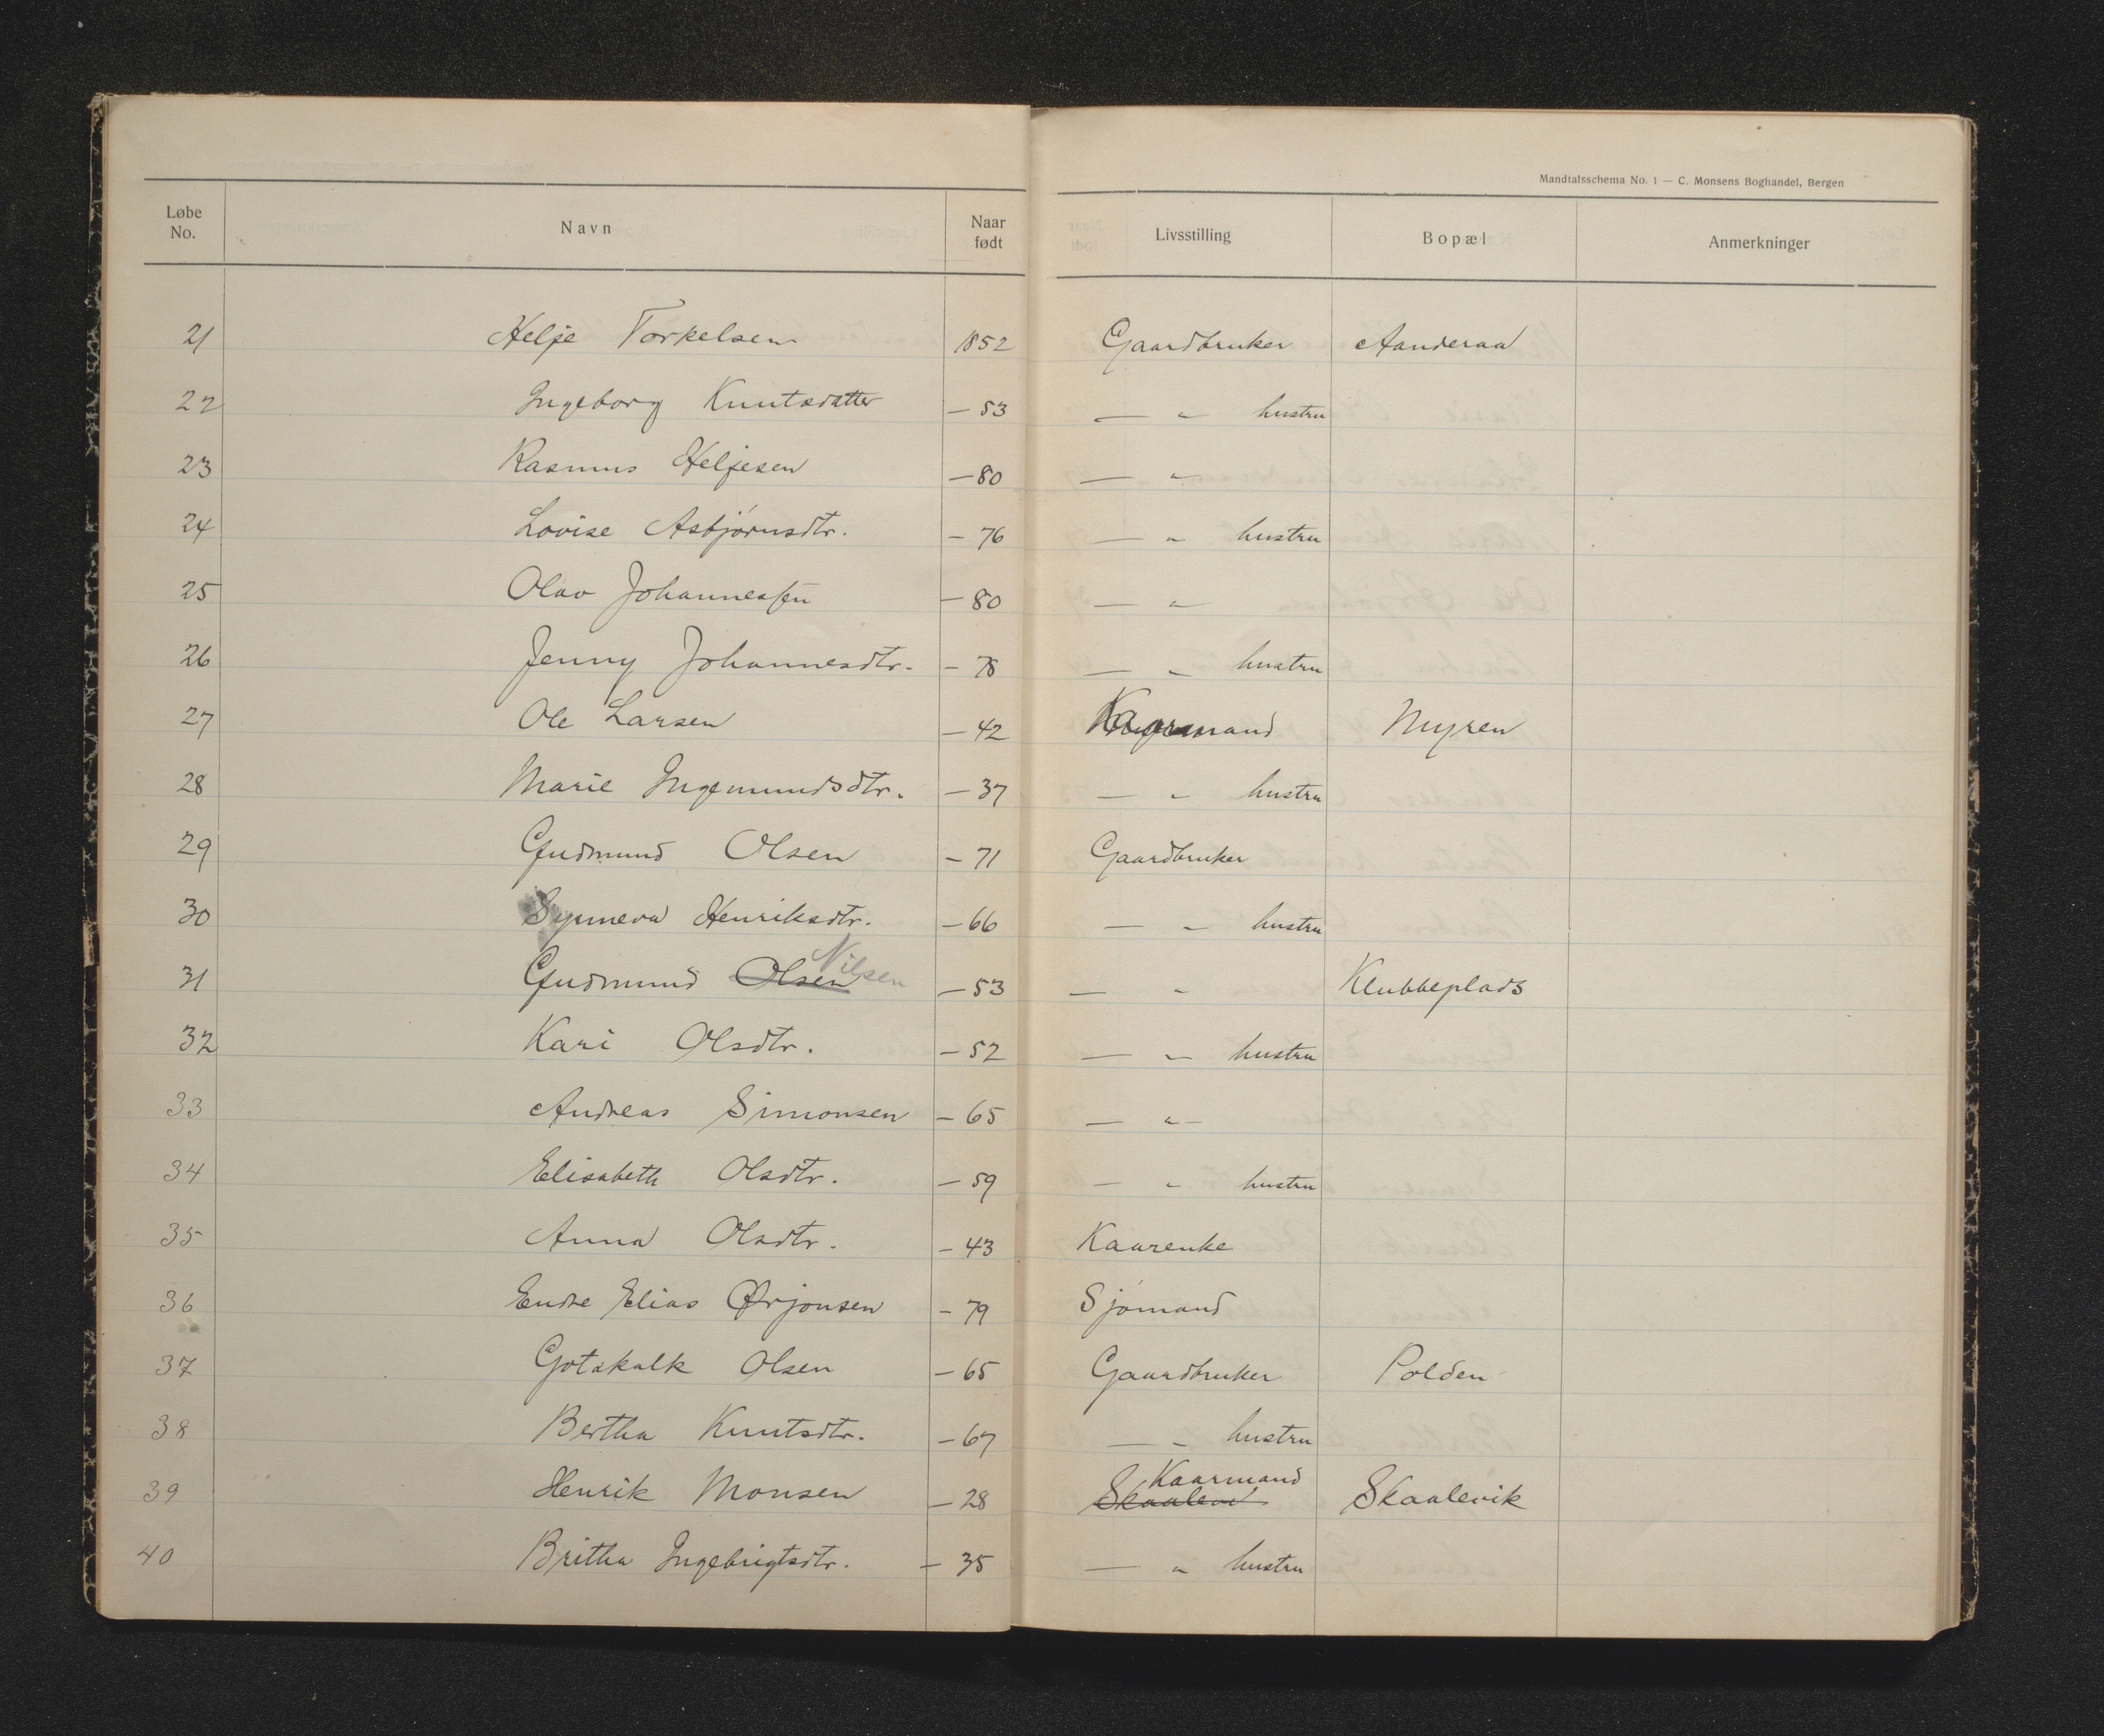 Mandtalsschema No. 1 — C. Monsens Boghandel, Bergen
Løbe No. Navn Naar født Livsstilling Bopæl Anmerkninger
21 Helje Torkelsen 1852 Gaardbruker Aanderaa
22 Ingeborg Knutsdatter — 53 — " — hustru
23 Rasmus Heljesen — 80 — " —
24 Lovise Asbjørnsdtr. — 76 — " — hustru
25 Olav Johannessen — 80 — " —
26 Jenny Johannesdtr. — 78 — " — hustru
27 Ole Larsen — 42 Kaarmand Myren
28 Marie Ingemundsdtr. — 37 — " — hustru
29 Gudmund Olsen — 71 Gaardbruker
30 Synneva Henriksdtr. — 66 — " — hustru
31 Gudmund Olsen Nilsen — 53 — " — Klubbeplads
32 Kari Olsdtr. — 52 — " — hustru
33 Andreas Simonsen — 65 — " —
34 Elisabeth Olsdtr. — 59 — " — hustru
35 Anna Olsdtr. — 43 Kaarenke
36 Endre Elias Ørjonsen — 79 Sjømand
37 Gotskalk Olsen — 65 Gaardbruker Polden
38 Bertha Knutsdtr. — 67 — " — hustru
39 Henrik Monsen — 28 Skaalevi Kaarmand Skaalevik
40 Britha Ingebrigtsdtr. — 35 — " — hustru